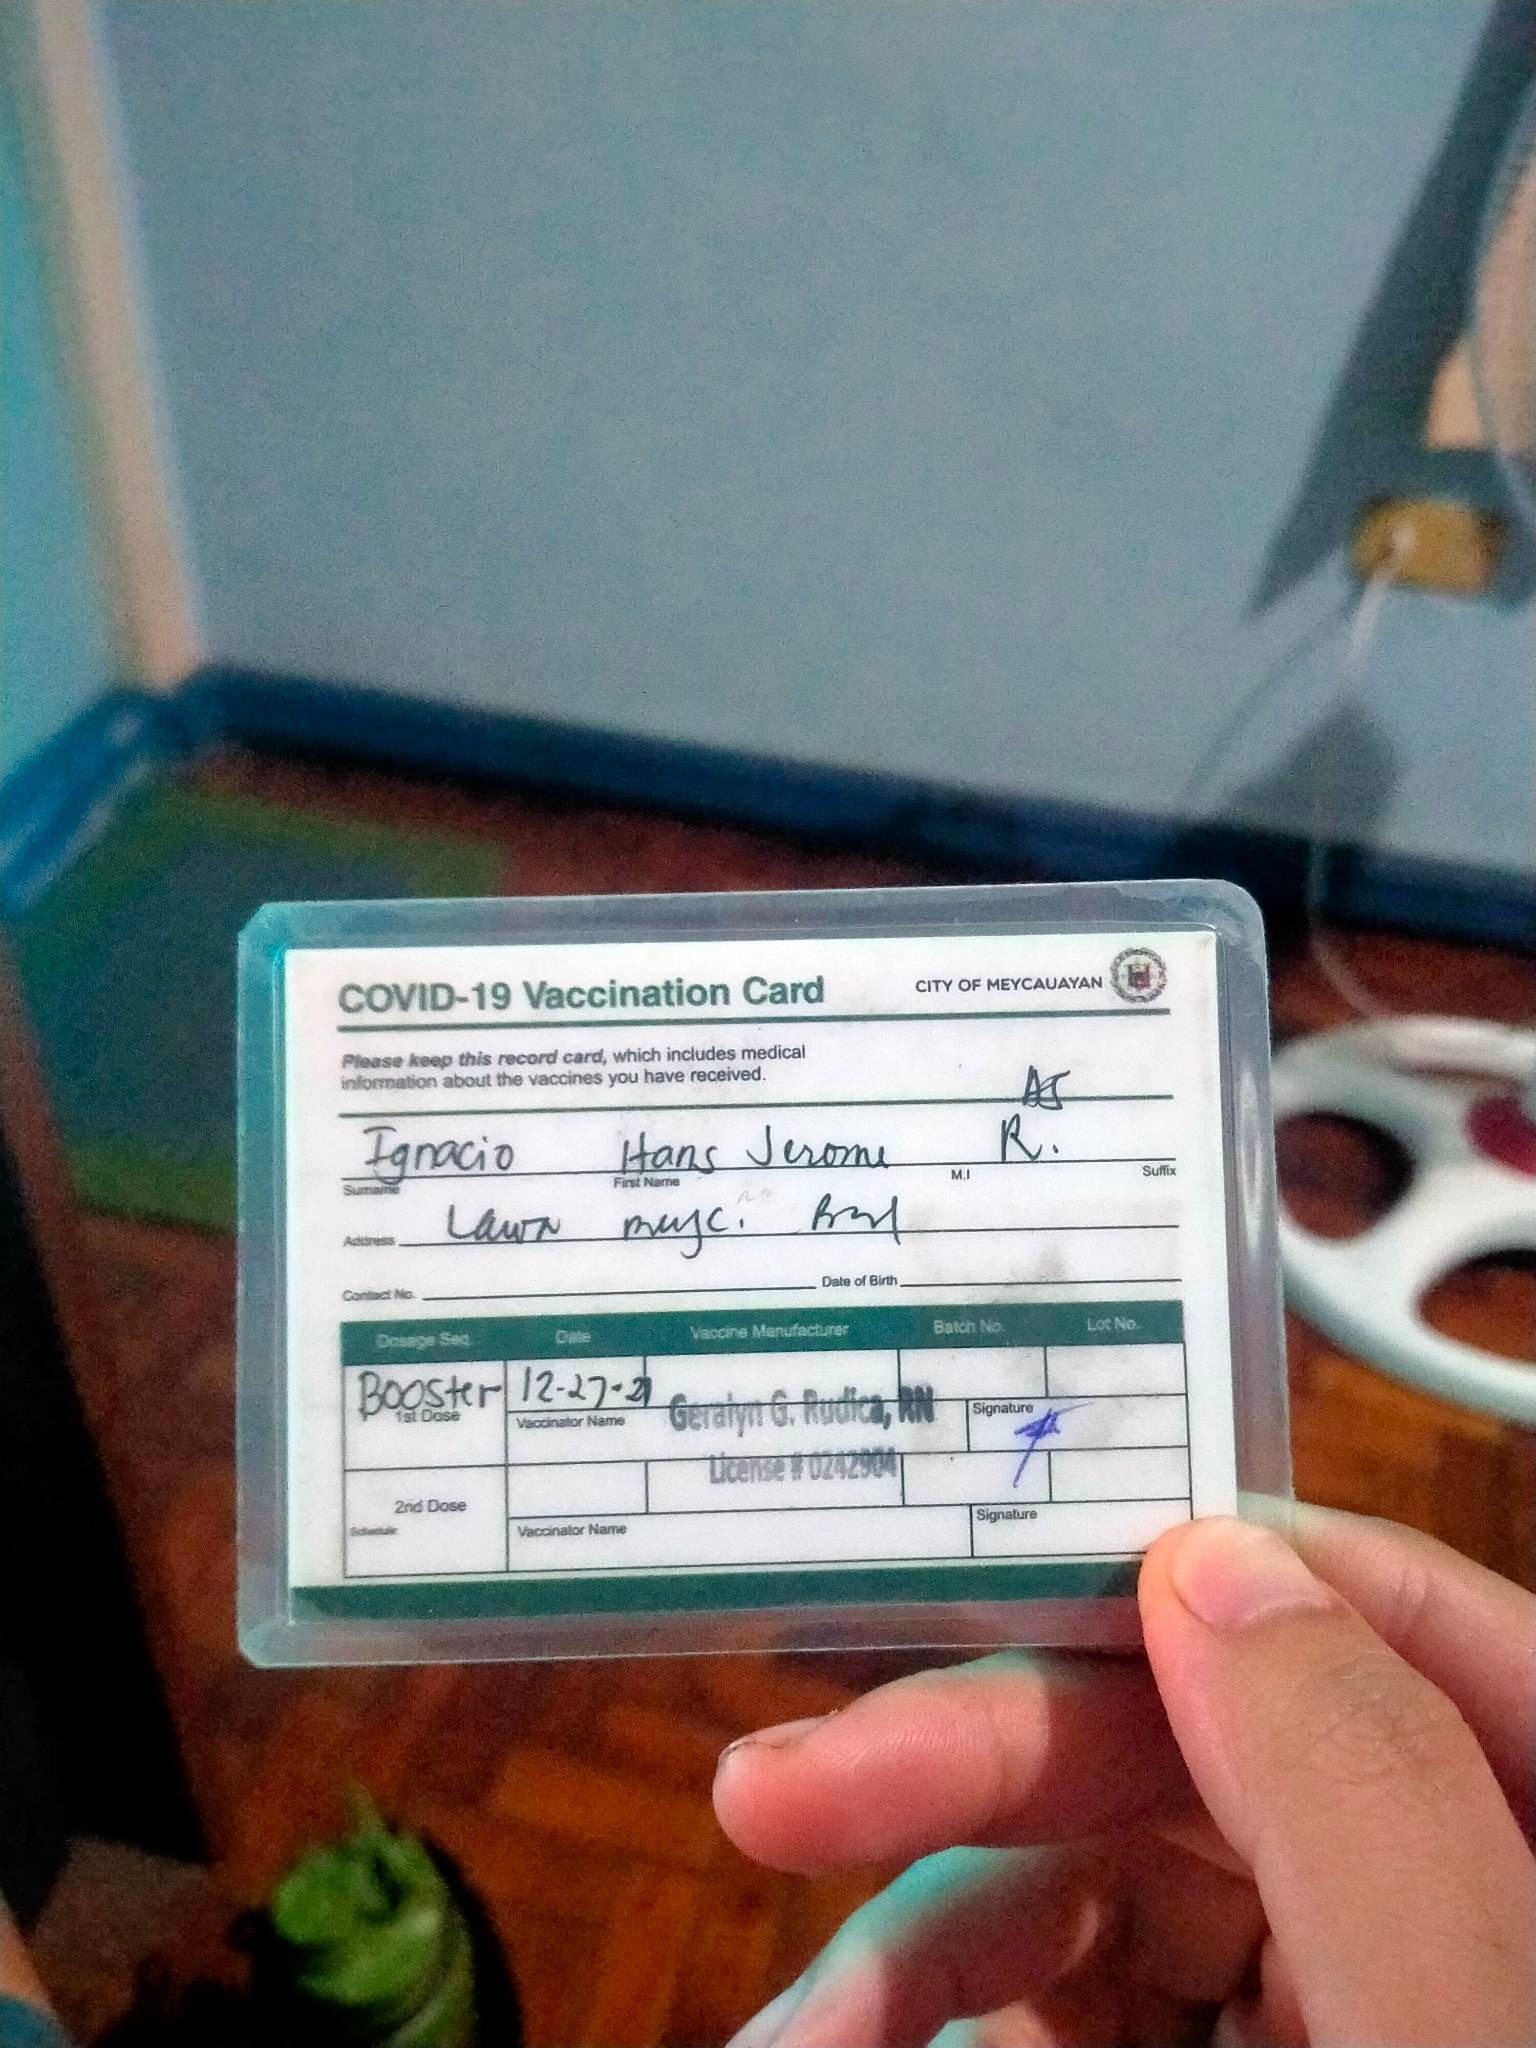 COVID-19 Vaccination Card CITY OF MEYCAUAYAN
Please keep this record card, which includes medical
information about the vaccines you have received.
AJ
Ignacio Hans Jerome R.
Surname First Name M.I Suffix
Address Lawa meyc. Bul
Contact No. Date of Birth
Dosage Seq. Date Vaccine Manufacturer Batch No. Lot No.
Booster 12-27-21
1st Dose Vaccinator Name Geralyn G. Rudica, RN Signature
License # 0242904
2nd Dose
Schedule: Vaccinator Name Signature